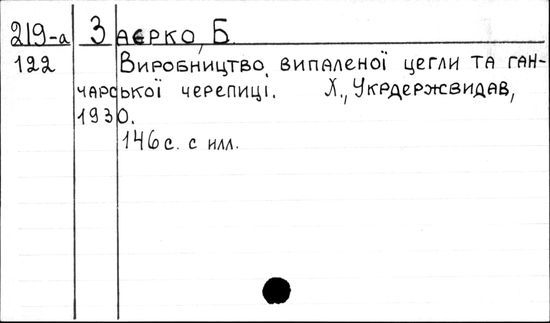 219-а ЗАЄРКО, Б.
122 Виробництво випаленої цегли та ган-
чарської черепиці. Х., Укрдержвидав,
1930.
146 с. с илл.